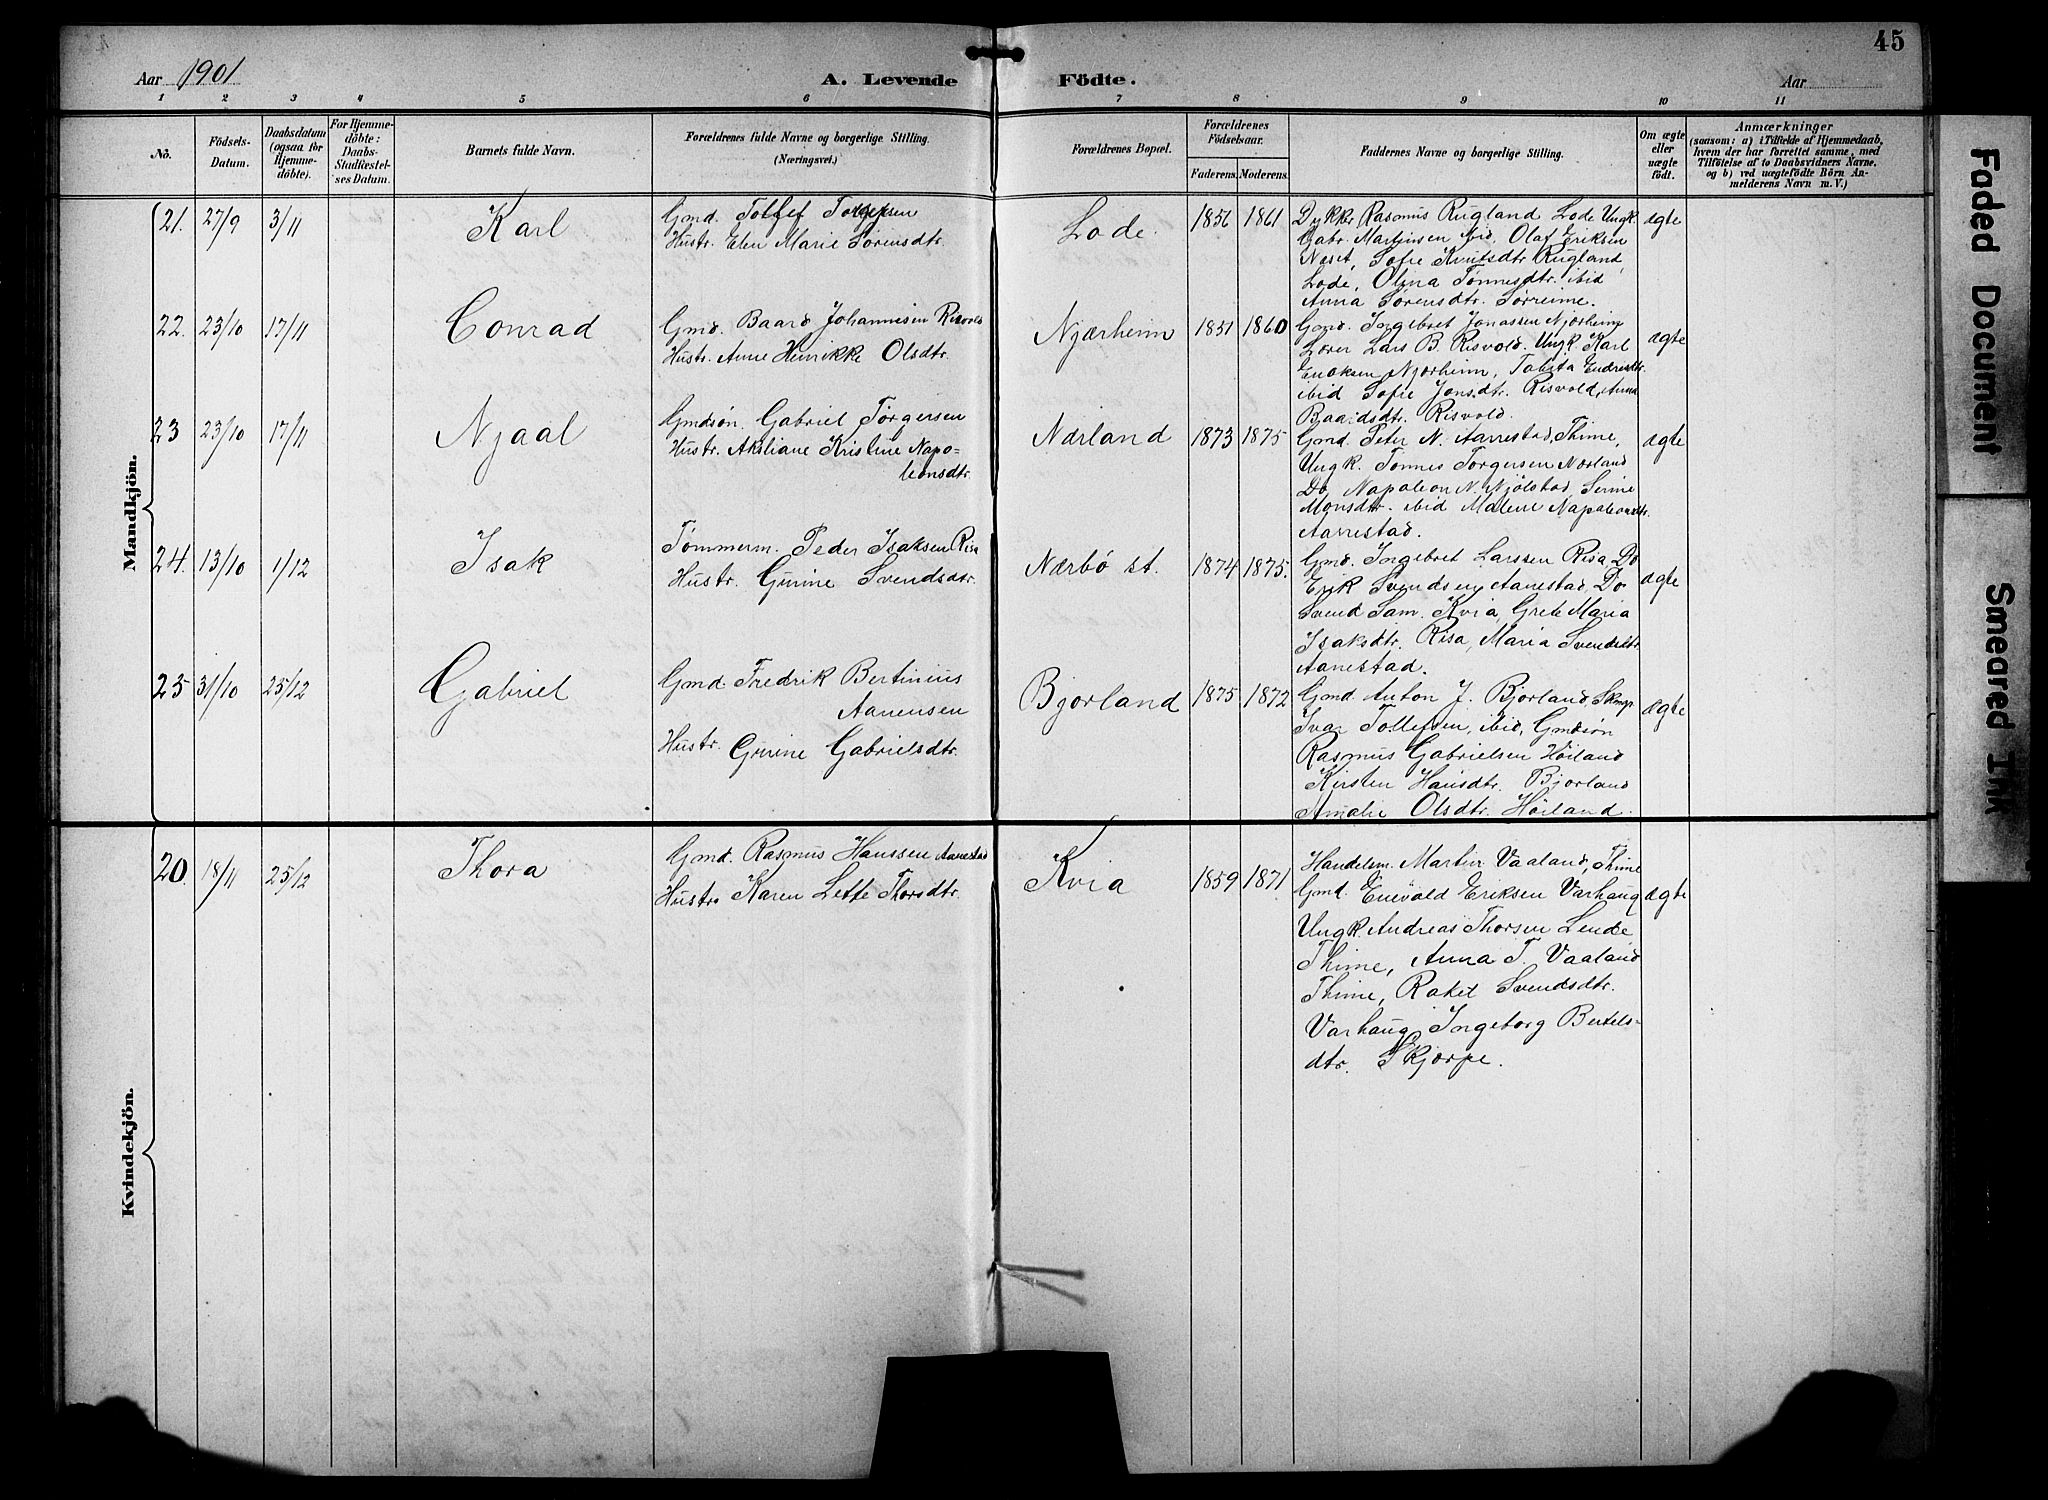 45
Aar 1901
A. Levende Födte.
Aar
1 2 3 4 5 6 7 8 9 10 11
No.
Födsels-
Datum.
Daabsdatum
(ogsaa for
Hjemme-
döbte).
For Hjemme-
döbte:
Daabs-
Stadfæstel-
ses Datum.
Barnets fulde Navn.
Forældrenes fulde Navne og borgerlige Stilling.
(Næringsvei.)
Forældrenes Bopæl.
Forældrenes
Födselsaar.
Faderens. Moderens.
Faddernes Navne og borgerlige Stilling.
Om ægte
eller
uægte
födt.
Anmærkninger
(saasom: a) i Tilfælde af Hjemmedaab,
hvem der har forrettet samme, med
Tilföielse af to Daabsvidners Navne,
og b) ved uægtefödte Börn An-
melderens Navn m. V.)
Mandkjön.
21. 27/9 3/11 Karl
Gmd. Tollef Torgersen
Hustr. Elen Marie Sorensdtr.
Lode. 1856 1861
Dykker Rasmus Rugland Lode Ungk.
Gabr. Martinsen ibid, Olaf Eriksen
Næset, Sofie Knutsdtr Rugland,
Lode, Olina Tønnesdtr. ibid
Anna Sørensdtr. Sørreime.
ægte
22. 23/10 17/11 Conrad
Gmd. Baard Johannesen Risvold
Hustr. Anne Henrikke Olsdtr.
Njærheim 1851 1860
Gmd. Ingebret Jonassen Njærheim
Lærer Lars B. Risvold. Ungk. Karl
Enoksen Njærheim, Tobita Endresdtr.
ibid Sofie Jonsdtr. Risvold, Anna
Baardsdtr. Risvold.
ægte
23 23/10 17/11 Njaal
Gmdsøn. Gabriel Torgersen
Hustr. Akseliane Kristine Napo-
leonsdtr.
Nærland 1873 1875
Gmd. Peter N. Aarrestad, Thime,
Ungk. Tonnes Torgersen Nærland
Do, Napoleon N. Njølstad, Serine
Monsdtr. ibid Malene Napoleonsdtr.
Aarrestad.
ægte
24. 13/10 1/12 Isak
Tømmerm. Peder Isaksen Risa
Hustr. Gurine Svendsdtr.
Nærbö st. 1874 1875.
Gmd. Ingebret Larssen Risa, Do
Erik Svendsen Aanestad, Do
Svend Sam. Kvia, Grete Maria
Isaksdtr. Risa, Maria Svendsdtr
Aanestad.
ægte
25 31/10 25/12 Gabriel
Gmd. Fredrik Bertinius
Aanensen
Hustr. Gurine Gabrielsdtr.
Bjorland 1875 1872
Gmd Anton J. Bjorland, Skmgr.
Ivar Tollefsen, ibid, Gmdsøn
Rasmus Gabrielsen Høiland
Kirsten Hansdtr. Bjorland
Amalie Olsdtr. Høiland.
ægte
Kvindekjön.
20. 18/11 25/12 Thora
Gmd. Rasmus Hanssen Aanestad
Hustr. Karen Lette Thorsdtr.
Kvia 1859 1871
Handelsm. Martin Vaaland, Thime
Gmd. Enevald Eriksen Varhaug
Ungk. Andreas Thorsen Lende,
Thime, Anna T. Vaaland
Thime, Rakel Svendsdtr.
Varhaug, Ingeborg Bertels-
dtr. Skjærpe.
ægte
Faded Document
Smeared Ink